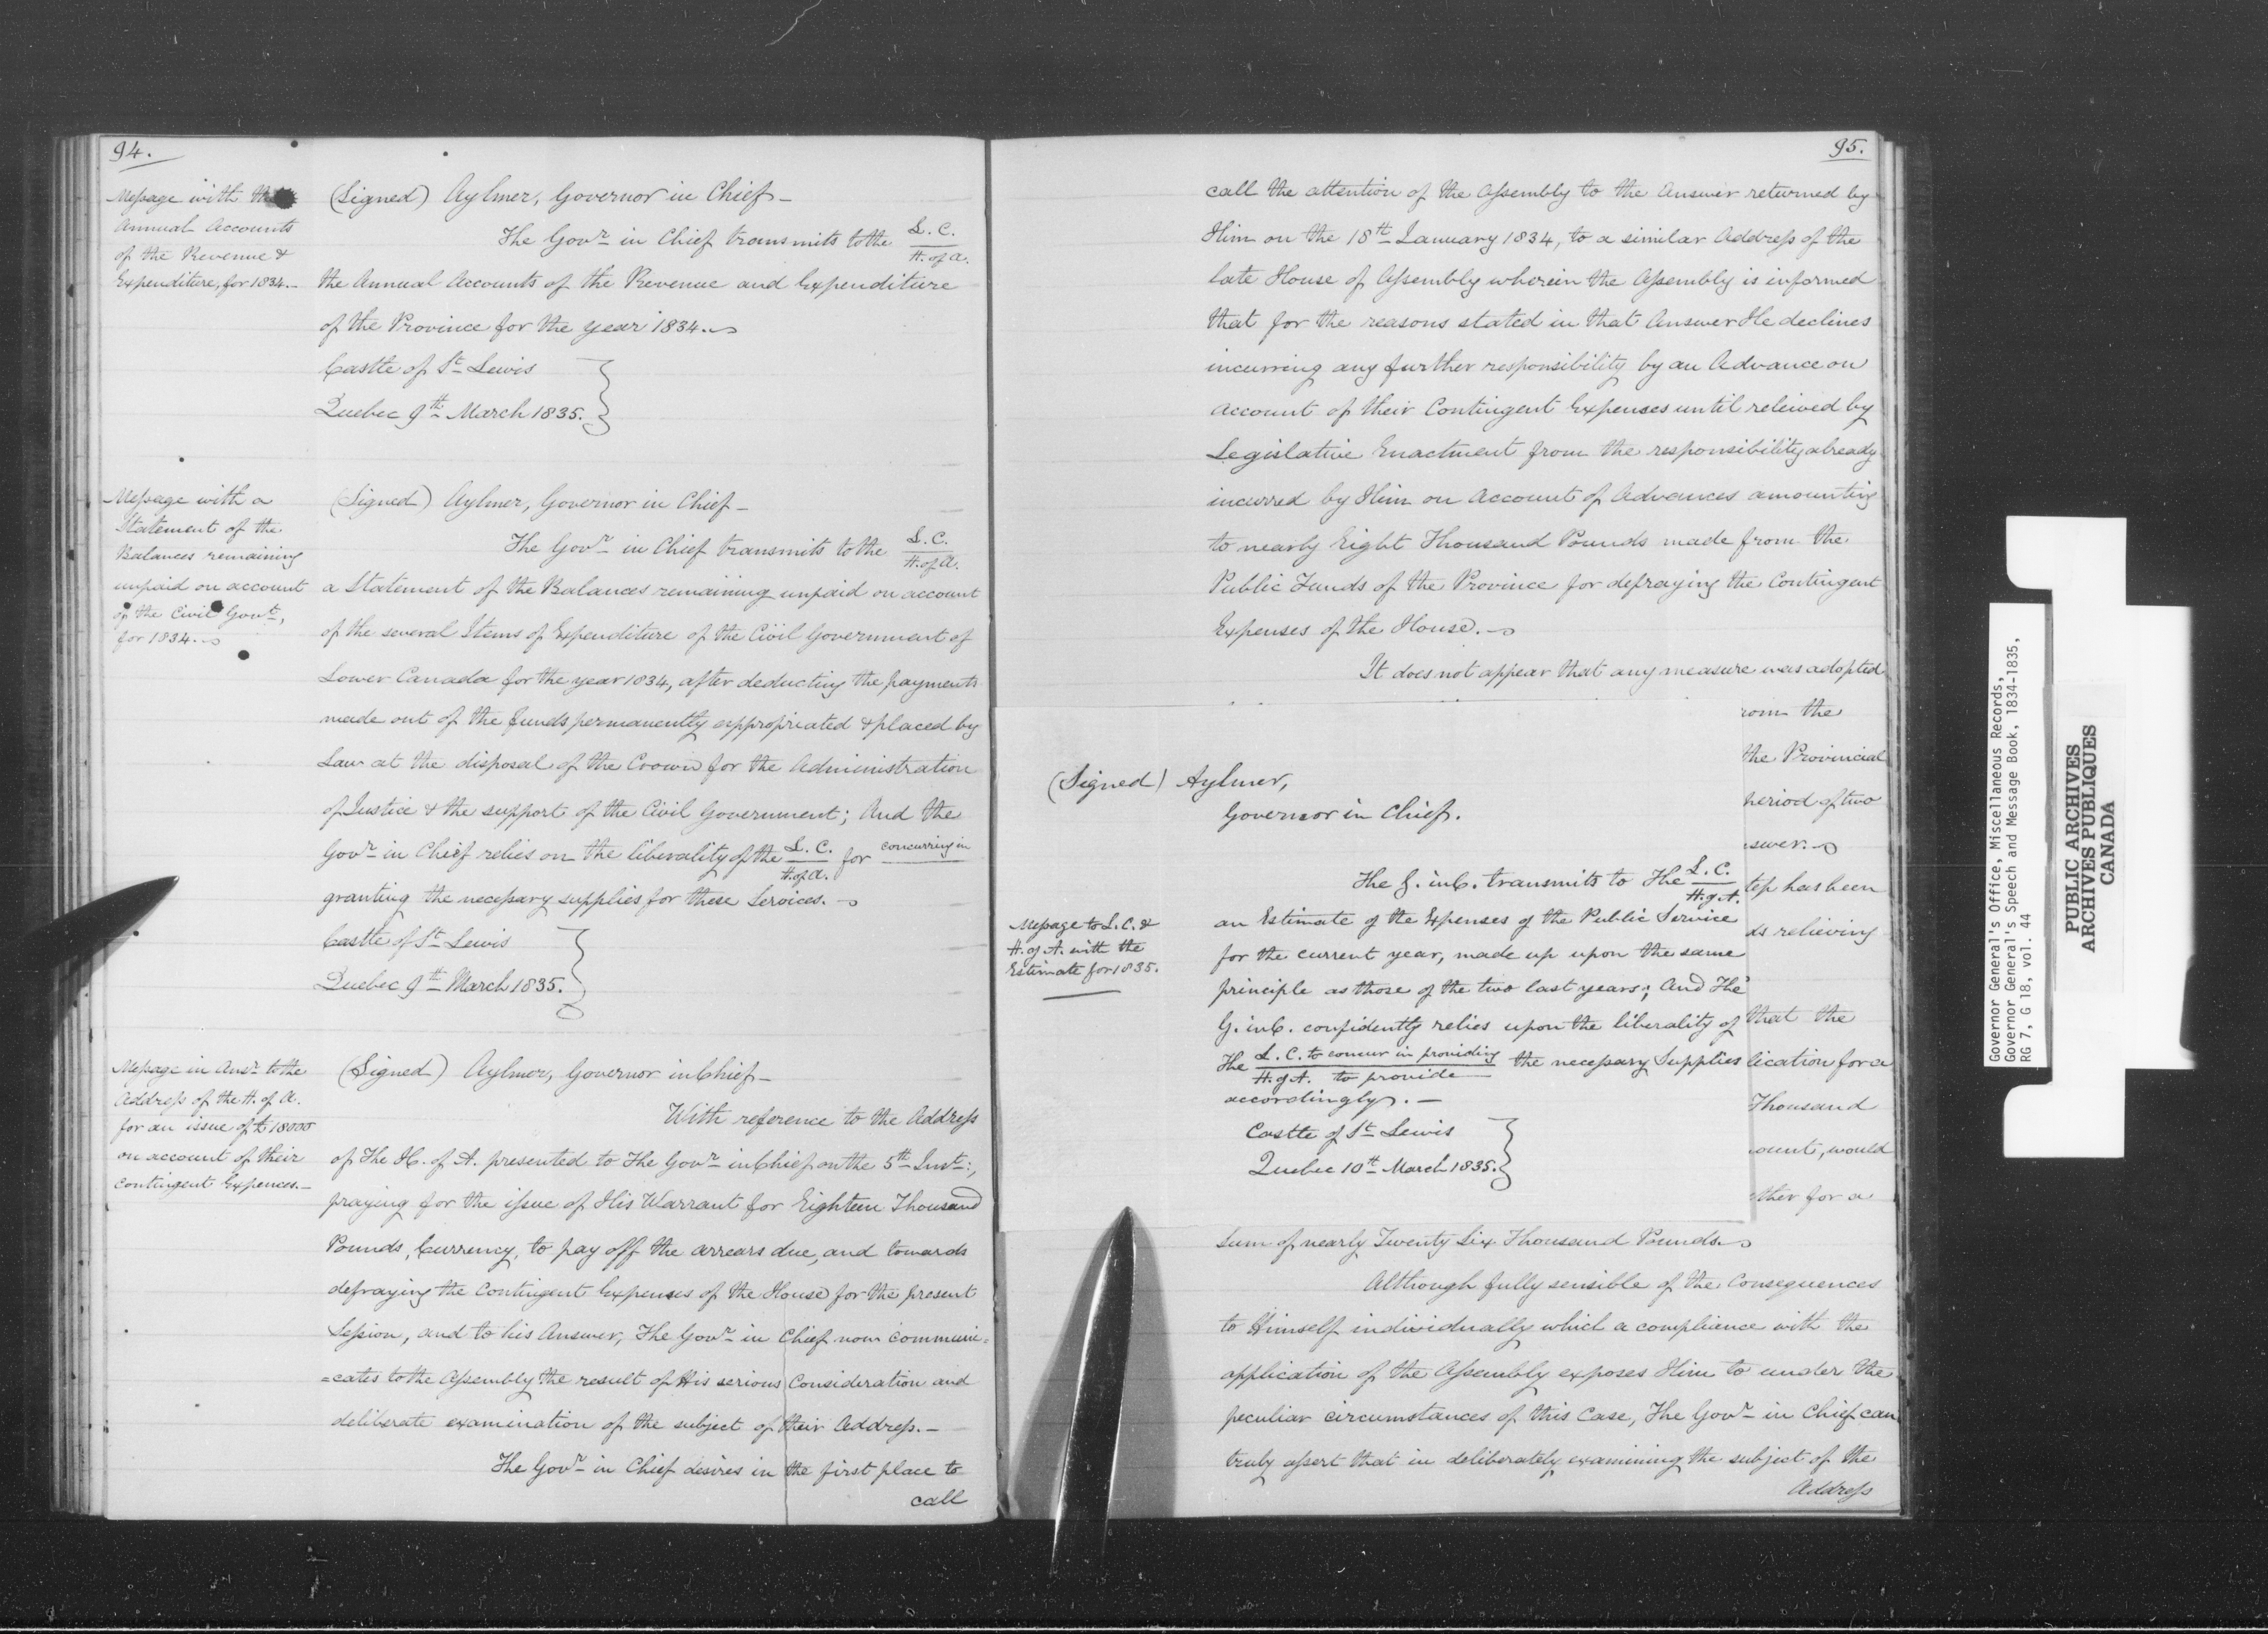 94.
Message with the
Annual Accounts
of the Revenue &
Expenditure, for 1834.—
(Signed) Aylmer, Governor in Chief—
The Govr in Chief transmits to the L. C.
H. of A.
the Annual Accounts of the Revenue and Expenditure
of the Province for the year 1834.
Castle of St Lewis
Quebec 9th March 1835.
Message with a
Statement of the
Balances remaining
unpaid on account
of the Civil Govt,
for 1834.
(Signed) Aylmer, Governor in Chief—
The Govr in Chief transmits to the L. C.
H. of A.
a Statement of the Balances remaining unpaid on account
of the several Items of Expenditure of the Civil Government of
Lower Canada for the year 1834, after deducting the payments
made out of the funds permanently appropriated & placed by
Law at the disposal of the Crown for the Administration
of Justice & the support of the Civil Government; And the
Govr in Chief relies on the liberality of the L. C. for concurring in
H. of A.
granting the necessary supplies for these Services.
Castle of St Lewis
Quebec 9th March 1835.
Message in Ansr to the
Address of the H. of A.
for an issue of £18000
on account of their
Contingent Expences.—
(Signed) Aylmer, Governor in Chief—
With reference to the Address
of The H. of A. presented to The Govr in Chief on the 5th Inst:,
praying for the issue of His Warrant for Eighteen Thousand
Pounds, Currency, to pay off the arrears due, and towards
defraying the Contingent Expenses of the House for the present
Session, and to his Answer, The Govr in Chief now communi=
=cates to the Assembly the result of His serious Consideration and
deliberate examination of the subject of their Address.—
The Govr in Chief desires in the first place to
call
95.
call the attention of the Assembly to the Answer returned by
Him on the 18th January 1834, to a similar Address of the
late House of Assembly wherein the Assembly is informed
that for the reasons stated in that Answer He declines
incurring any further responsibility by an Advance on
account of their Contingent Expenses until releived by
Legislative Enactment from the responsibility already
incurred by Him on Account of Advances amounting
to nearly Eight Thousand Pounds made from the
Public Funds of the Province for defraying the Contingent
Expenses of the House.
It does not appear that any measure was adopted
rom the
the Provincial
period of two
swer.
tep has been
ds relieving
that the
lication for a
Thousand
ount, would
ther for a
(Signed) Aylmer,
Governor in Chief.
Message to L. C. &
H. of A. with the
Estimate for 1835.
The G. in C. transmits to The L. C.
H. of A.
an Estimate of the Expenses of the Public Service
for the current year, made up upon the same
principle as those of the two last years; And The
G. in C. confidently relies upon the liberality of
The L. C. to concur in providing the necessary Supplies
H. of A. to provide
accordingly.—
Castle of St Lewis
Quebec 10th March 1835.
Sum of nearly Twenty Six Thousand Pounds.
Although fully sensible of the Consequences
to Himself individually which a complience with the
application of the Assembly exposes Him to under the
peculiar circumstances of this Case, The Govr in Chief can
truly assert that in deliberately examining the subject of the
Address
Governor General's Office, Miscellaneous Records,
Governor General's Speech and Message Book, 1834-1835,
RG 7, G 18, vol. 44
PUBLIC ARCHIVES
ARCHIVES PUBLIQUES
CANADA